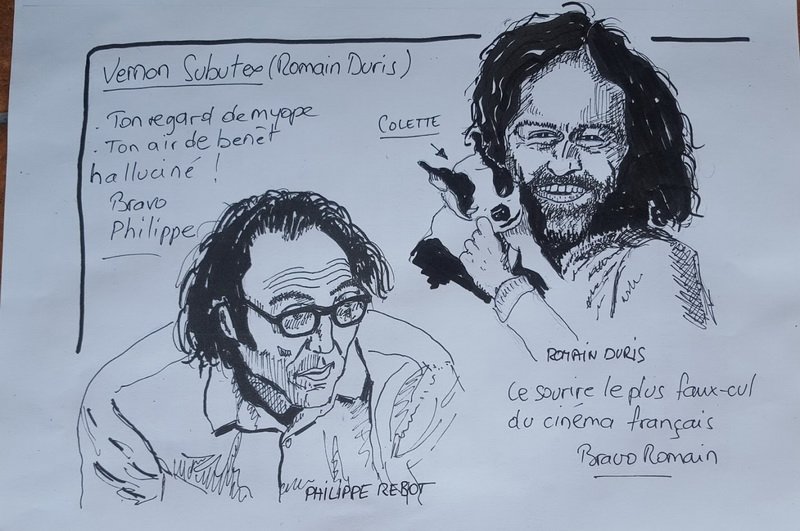 Vernon Subutex (Romain Duris)
. Ton regard de myope
. Ton air de benêt
halluciné !
Bravo
Philippe
COLETTE
ROMAIN DURIS
Ce sourire le plus faux-cul
du cinéma français
Bravo Romain
PHILIPPE REBOT